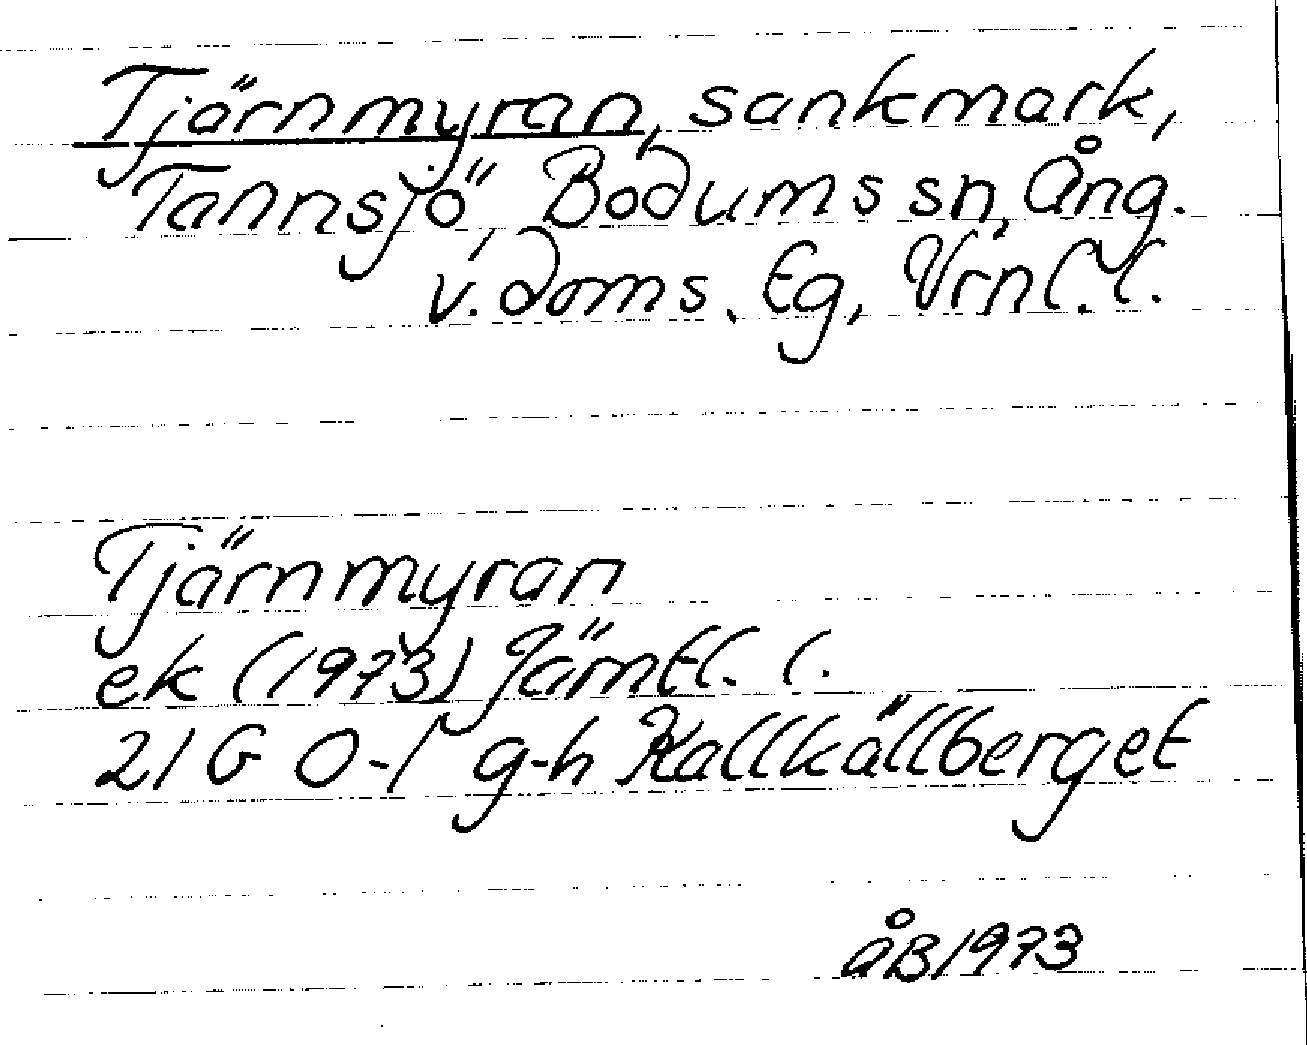 Tjärnmyran, sankmark,
Tannsjö, Bodums sn, Ång.
v. doms. Eg, Vrnl. l.
Tjärnmyran
ek (1973) Jämtl. l.
21 G 0-1 g-h Kallkällberget
åB 1973